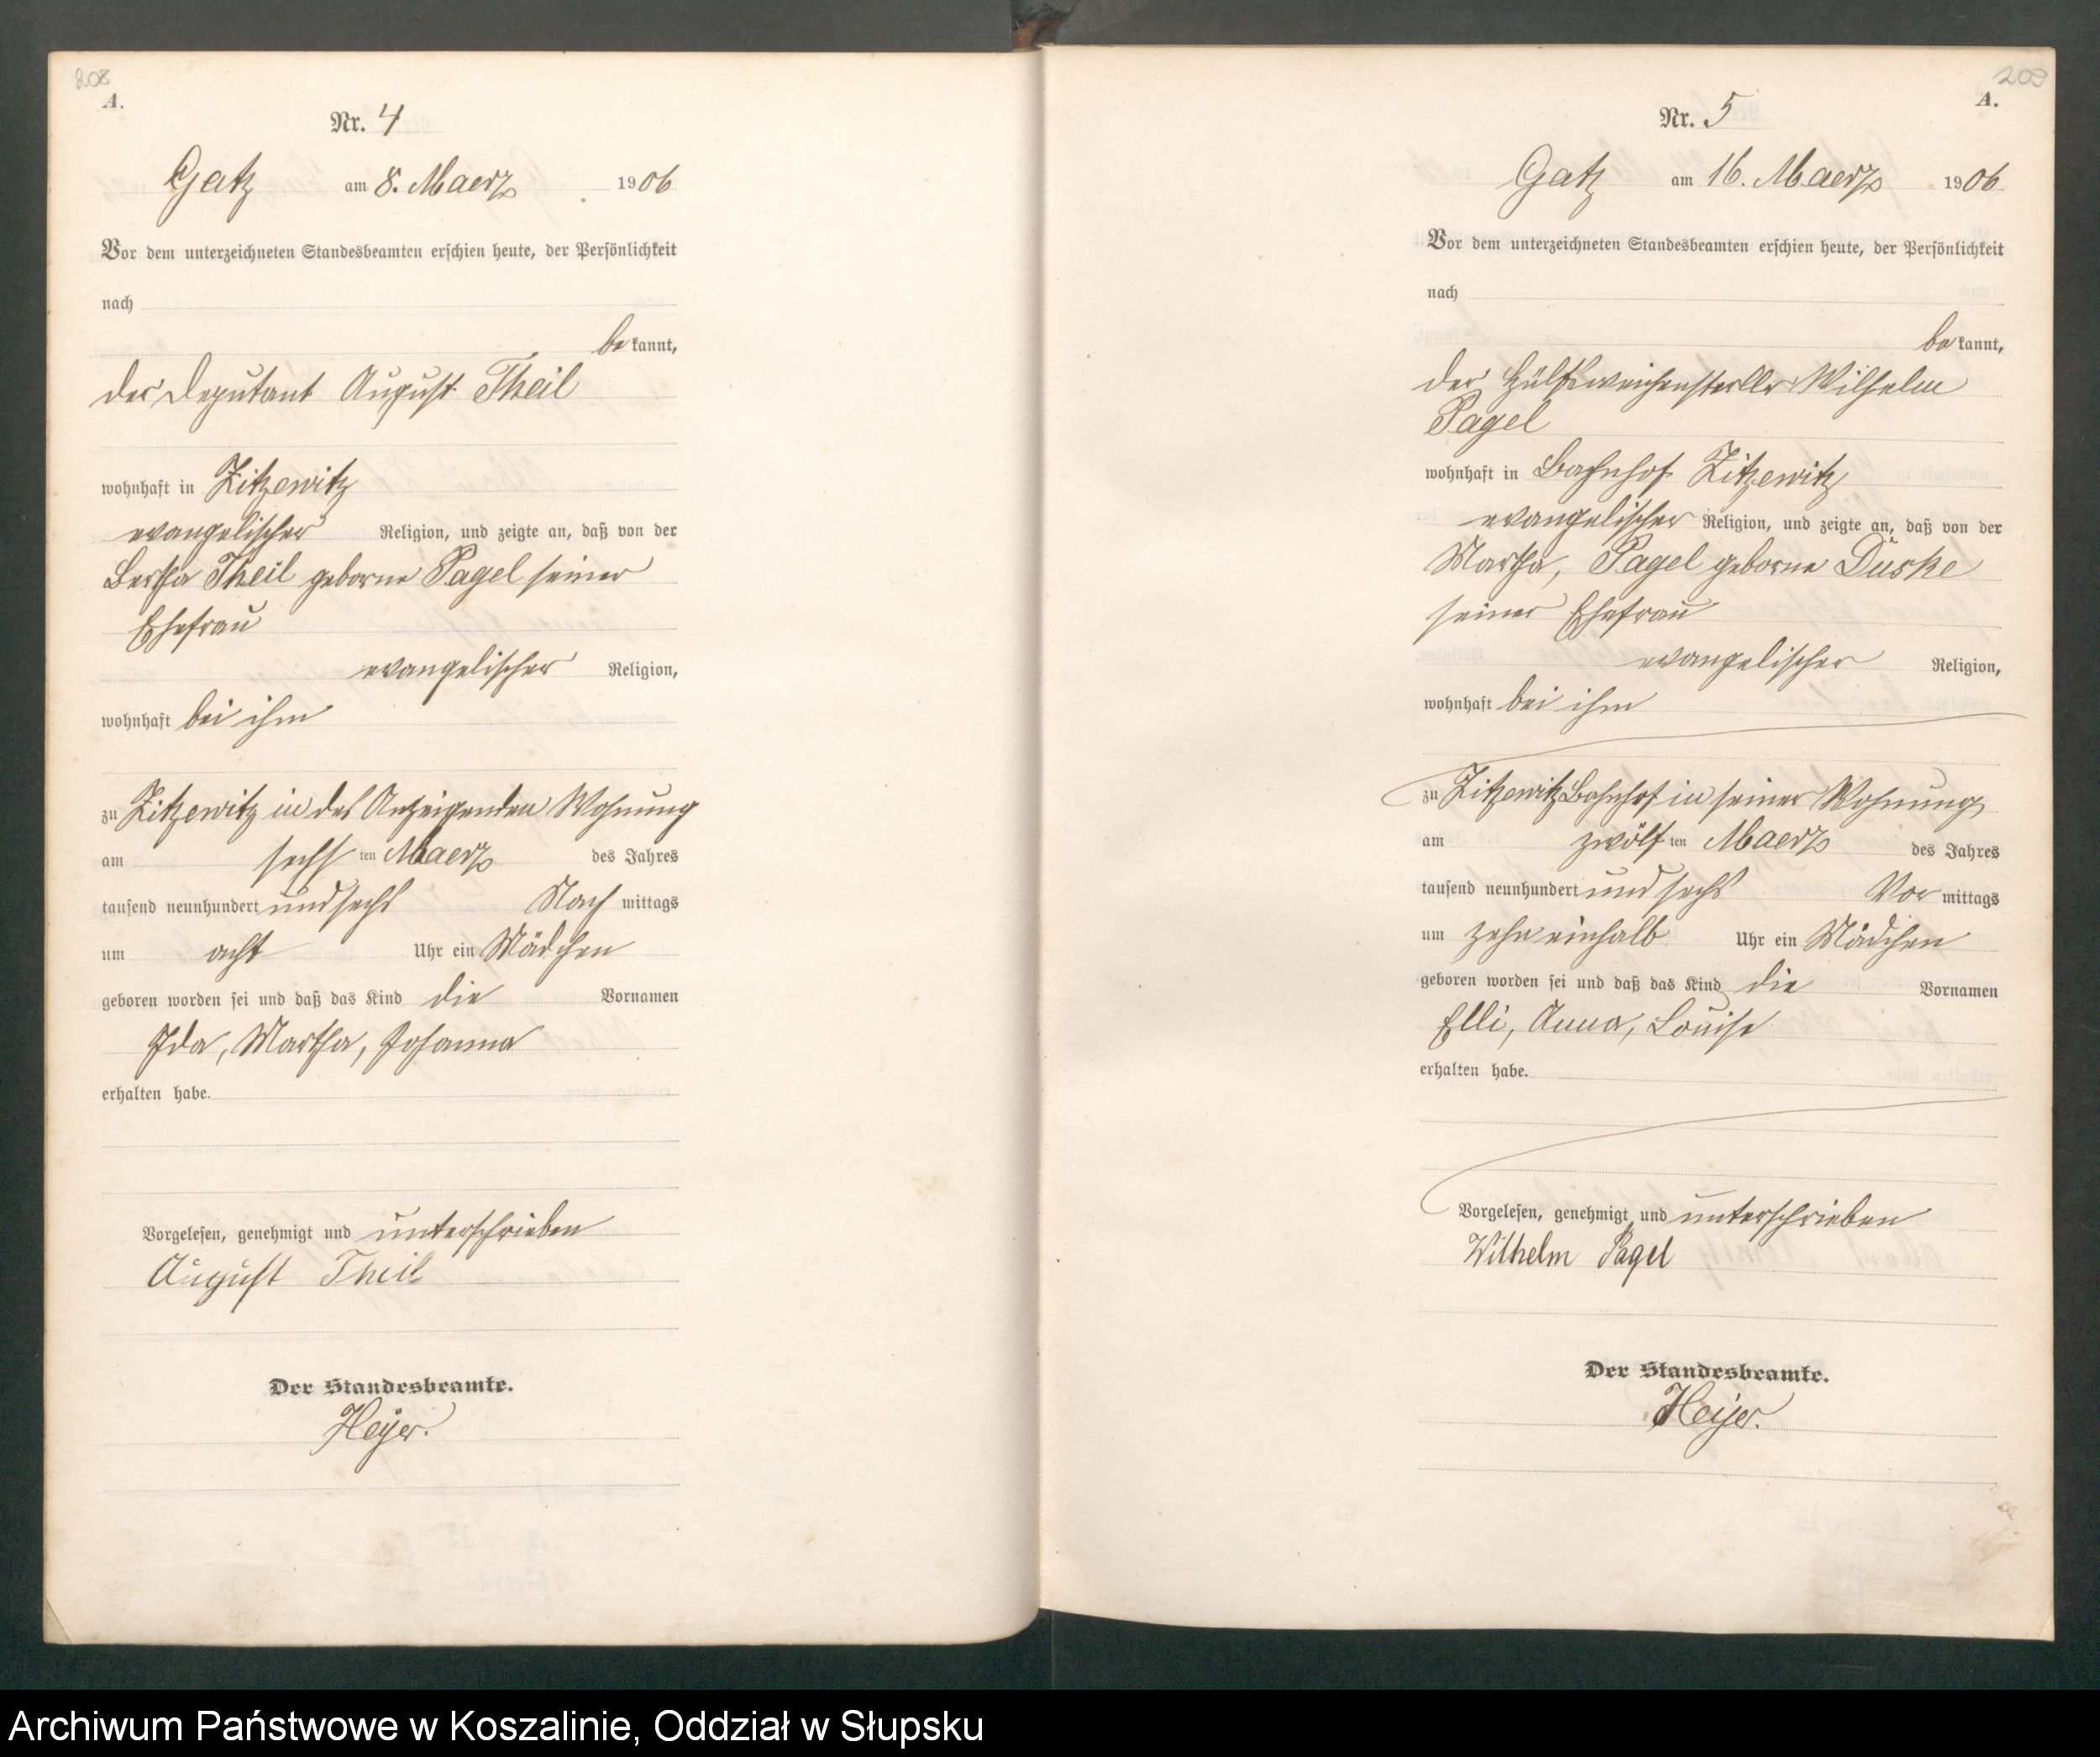 208
A.
Nr. 4
Gatz am 8. Maerz 1906
Vor dem unterzeichneten Standesbeamten erschien heute, der Persönlichkeit
nach
bekannt,
der Deputant August Theil
wohnhaft in Zitzewitz
evangelischer Religion, und zeigte an, daß von der
Bertha Theil geborne Pagel seiner
Ehefrau
evangelischer Religion,
wohnhaft bei ihm
zu Zitzewitz in des Anzeigenden Wohnung
am sechsten Maerz des Jahres
tausend neunhundert und sechs Nachmittags
um acht Uhr ein Mädchen
geboren worden sei und daß das Kind die Vornamen
Ida, Martha, Johanna
erhalten habe.
Vorgelesen, genehmigt und unterschrieben
August Theil
Der Standesbeamte.
Heyer.
209
A.
Nr. 5
Gatz am 16. Maerz 1906
Vor dem unterzeichneten Standesbeamten erschien heute, der Persönlichkeit
nach
bekannt,
der Hülfsweichensteller Wilhelm
Pagel
wohnhaft in Bahnhof Zitzewitz
evangelischer Religion, und zeigte an, daß von der
Martha, Pagel geborne Düske
seiner Ehefrau
evangelischer Religion,
wohnhaft bei ihm
zu Zitzewitz Bahnhof in seiner Wohnung
am zwölften Maerz des Jahres
tausend neunhundert und sechs Vormittags
um zehn einhalb Uhr ein Mädchen
geboren worden sei und daß das Kind die Vornamen
Elli, Anna, Louise
erhalten habe.
Vorgelesen, genehmigt und unterschrieben
Wilhelm Pagel
Der Standesbeamte.
Heyer.
Archiwum Państwowe w Koszalinie, Oddział w Słupsku